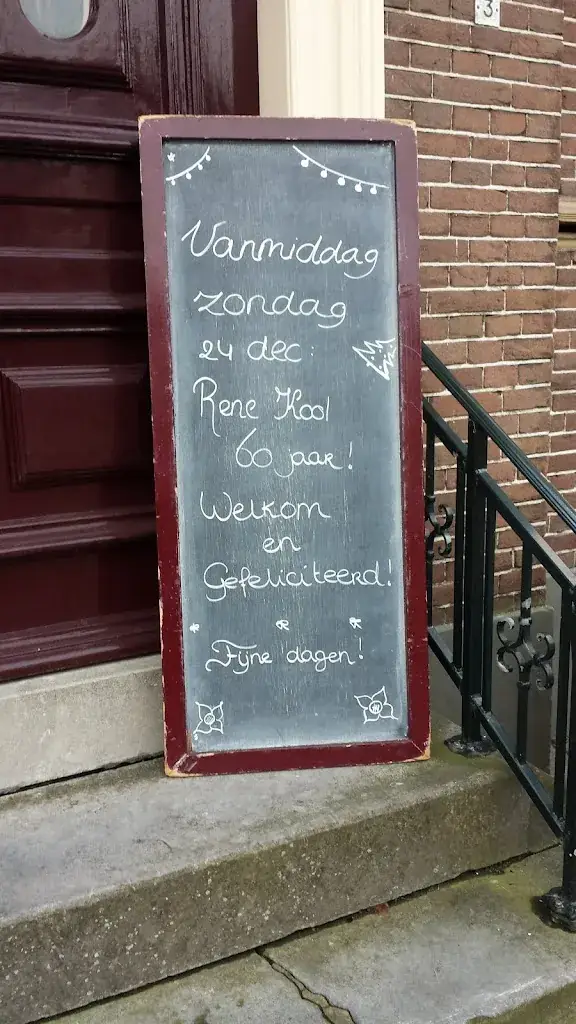 3
Vanmiddag
zondag
24 dec:
Rene Kool
60 jaar!
Welkom
en
Gefeliciteerd!
Fijne dagen!